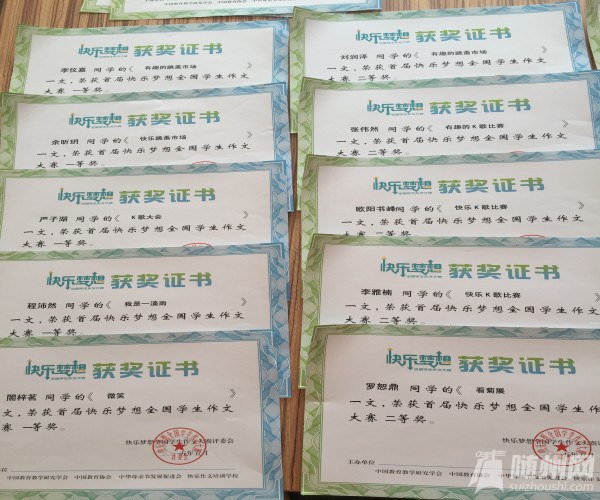 中国教育教学研究学会 中国教育协会
快乐梦想 获奖证书
李仪嘉 同学的《 有趣的跳蚤市场 》
一文,荣获首届快乐梦想全国学生作文
大赛 一等奖。
快乐梦想 获奖证书
余昕玥 同学的《 快乐跳蚤市场 》
一文,荣获首届快乐梦想全国学生作文
大赛 一等奖。
快乐梦想 获奖证书
严子湖 同学的《 K歌大会 》
一文,荣获首届快乐梦想全国学生作文
大赛 一等奖。
快乐梦想 获奖证书
程沛然 同学的《 我是一滴雨 》
一文,荣获首届快乐梦想全国学生作文
大赛 一等奖。
快乐梦想 获奖证书
阎梓茗 同学的《 微笑 》
一文,荣获首届快乐梦想全国学生作文
大赛 一等奖。
快乐梦想全国学生作文大赛评委会
中国教育教学研究学会 中国教育协会 中华母亲节发展促进会 快乐作文培训学校
快乐梦想 获奖证书
刘润泽 同学的《 有趣的跳蚤市场 》
一文,荣获首届快乐梦想全国学生作文
大赛 二等奖。
快乐梦想 获奖证书
张伟然 同学的《 有趣的K歌比赛 》
一文,荣获首届快乐梦想全国学生作文
大赛 二等奖。
快乐梦想 获奖证书
欧阳书峰同学的《 快乐K歌比赛 》
一文,荣获首届快乐梦想全国学生作文
大赛 二等奖。
快乐梦想 获奖证书
李雅楠 同学的《 快乐K歌比赛 》
一文,荣获首届快乐梦想全国学生作文
大赛 二等奖。
快乐梦想 获奖证书
罗恕鼎 同学的《 看菊展 》
一文,荣获首届快乐梦想全国学生作文
大赛 二等奖。
快乐梦想全国学生作文大赛评委会
主办单位
中国教育教学研究学会 中国教育协会
随州网
suizhoushi.com